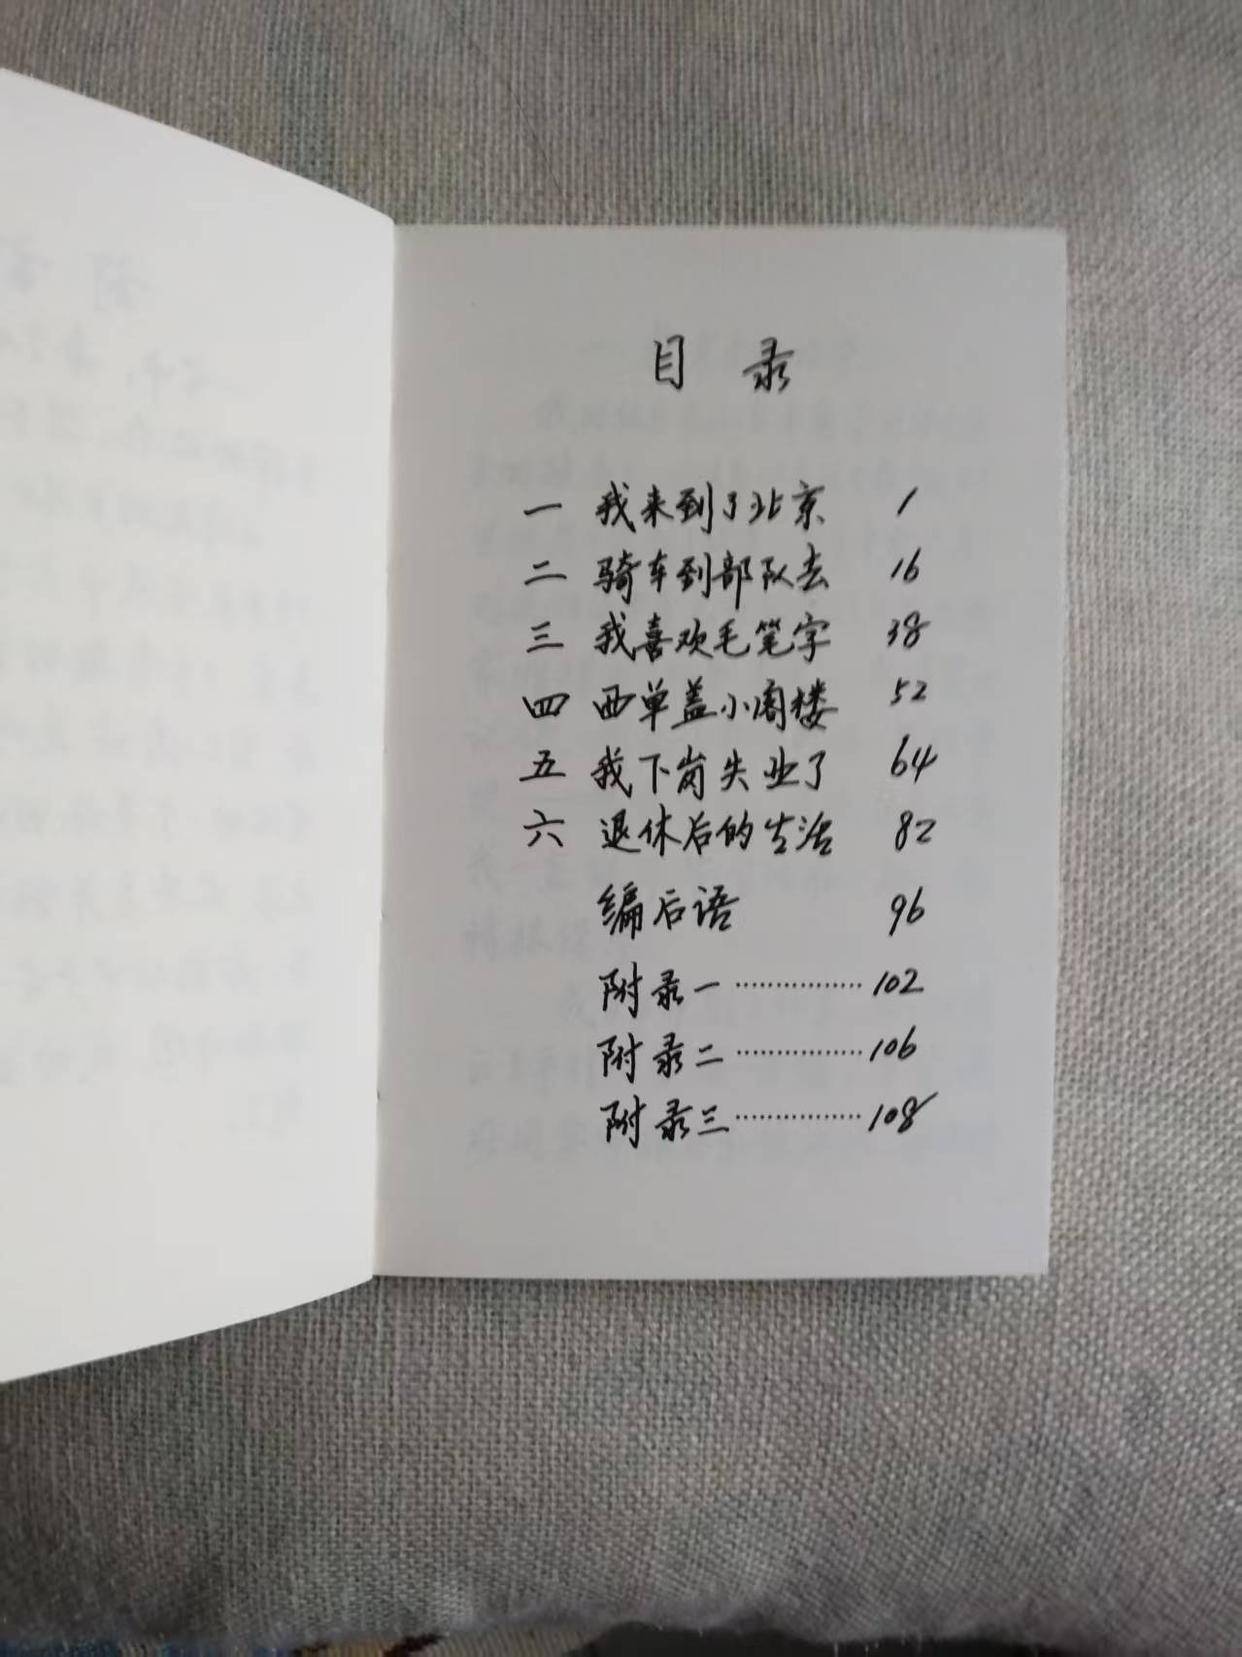 目录
一 我来到了北京 1
二 骑车到部队去 16
三 我喜欢毛笔字 38
四 西单盖小阁楼 52
五 我下岗失业了 64
六 退休后的生活 82
编后语 96
附录一 ················ 102
附录二 ················ 106
附录三 ················ 108